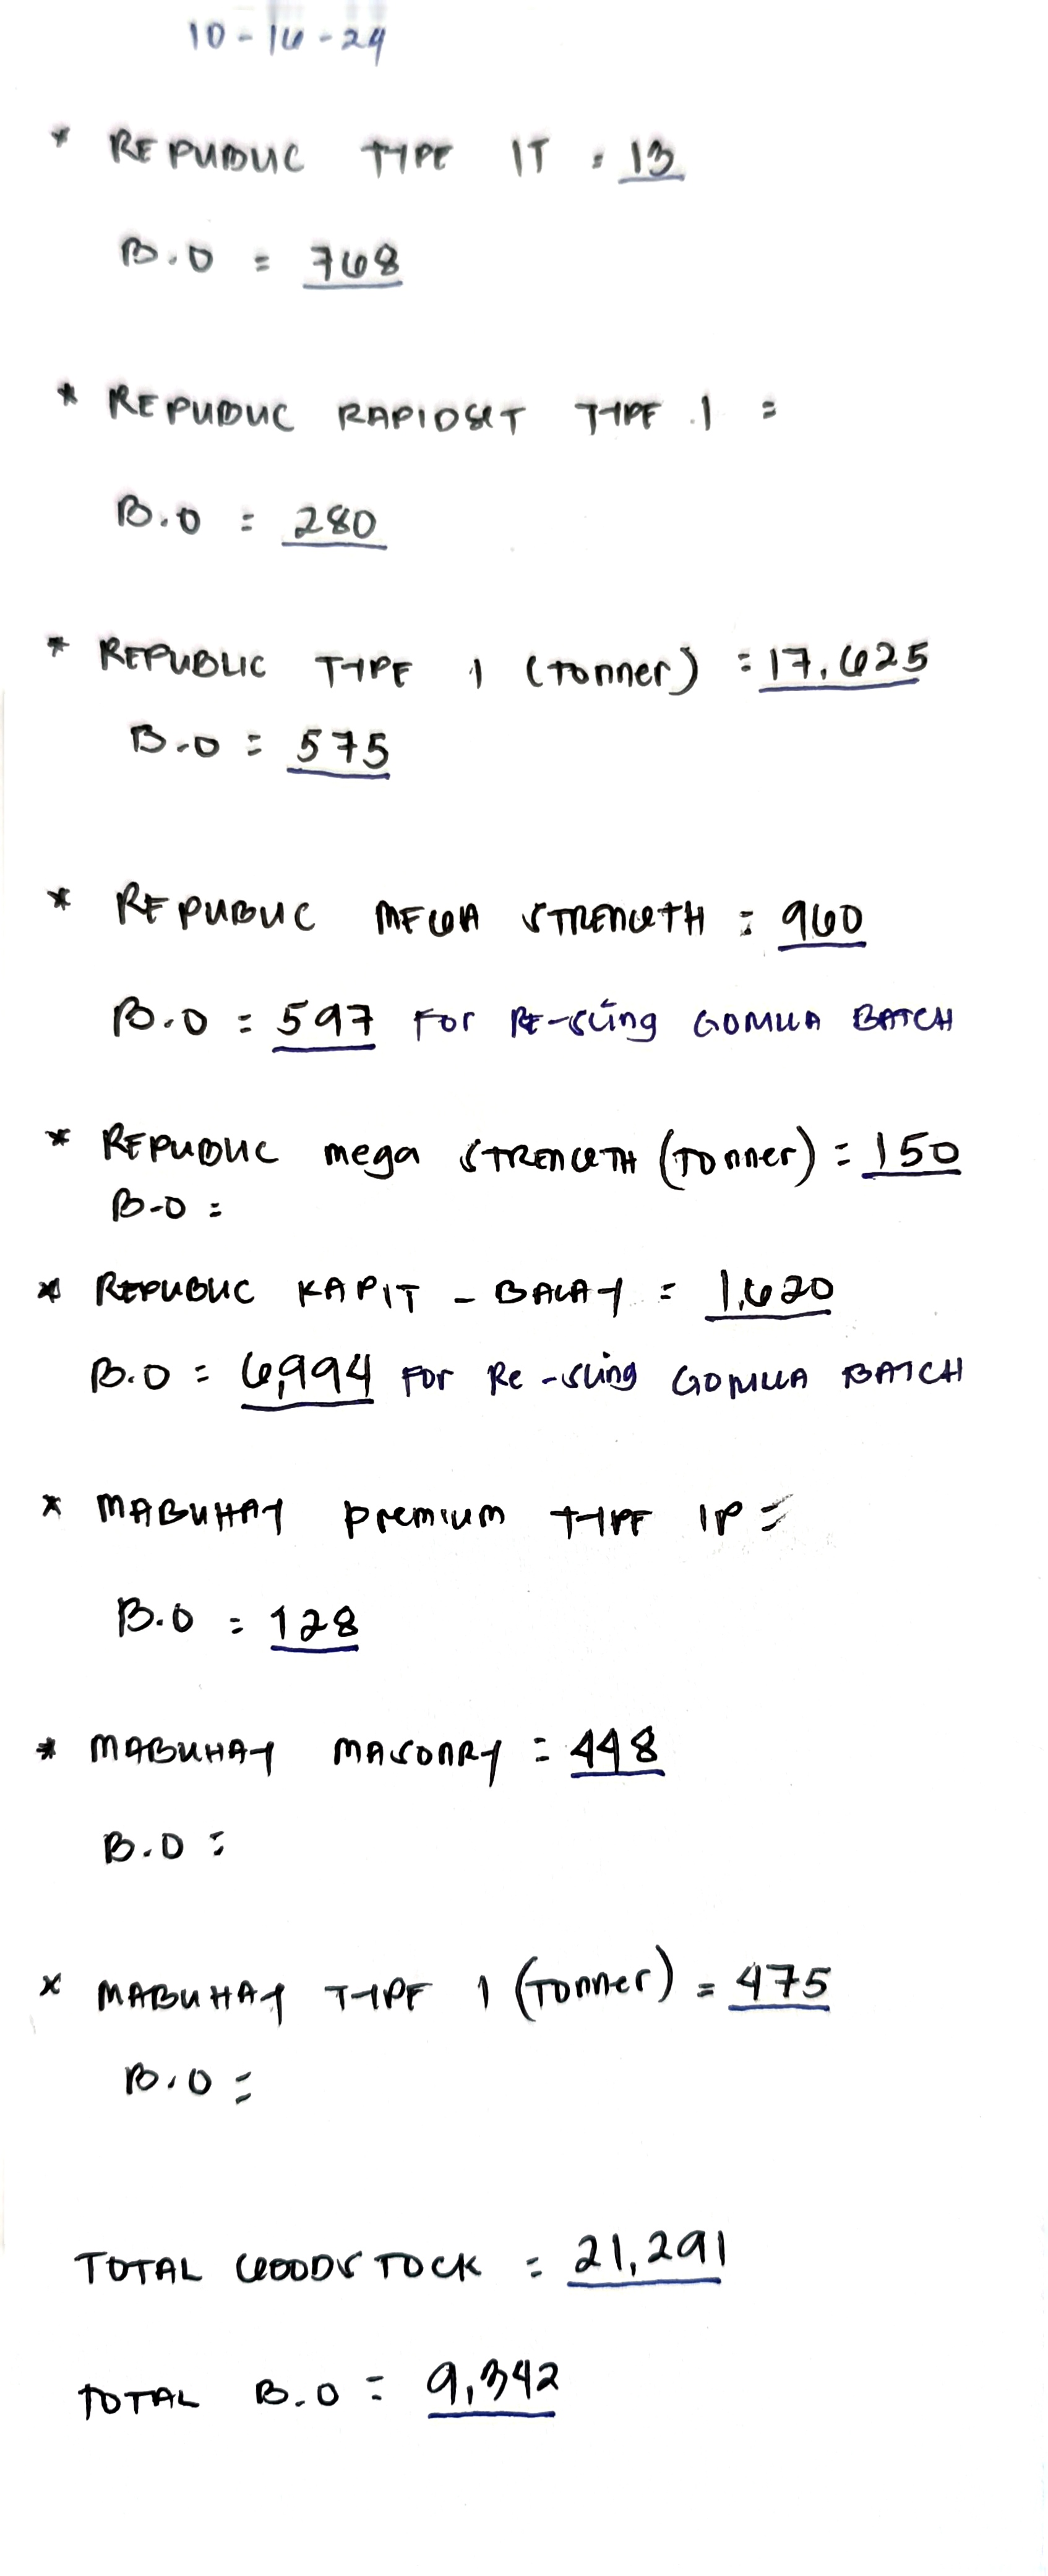 10-16-24
* REPUBLIC TYPE 1T = 13
B.O = 768
* REPUBLIC RAPIDSET TYPE 1 =
B.O = 280
* REPUBLIC TYPE 1 (Tonner) = 17,625
B.O = 575
* REPUBLIC MEGA STRENGTH = 960
B.O = 597 For RE-sling GOMUA BATCH
* REPUBLIC mega STRENGTH (Tonner) = 150
B.O =
* REPUBLIC KAPIT - BALAY = 1,620
B.O = 6,994 For Re-sling GOMUA BATCH
* MABUHAY Premium TYPE 1P =
B.O = 128
* MABUHAY MASONRY = 448
B.O =
* MABUHAY TYPE 1 (Tonner) = 475
B.O =
TOTAL GOODSTOCK = 21,291
TOTAL B.O = 9,342